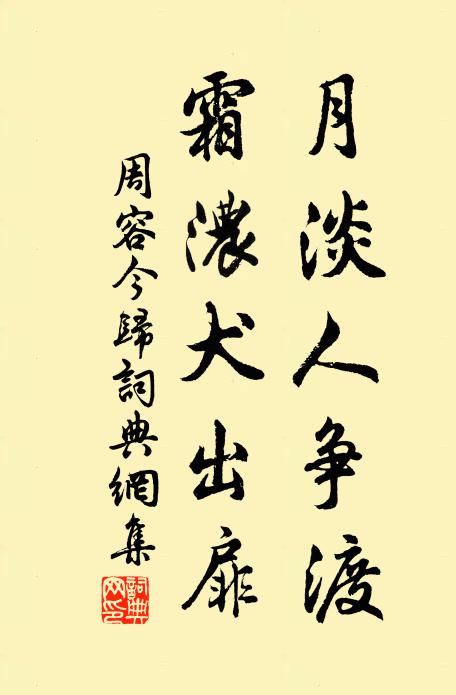 月淡人争渡
霜濃犬出扉
周容今歸詞典網集
詞典网印